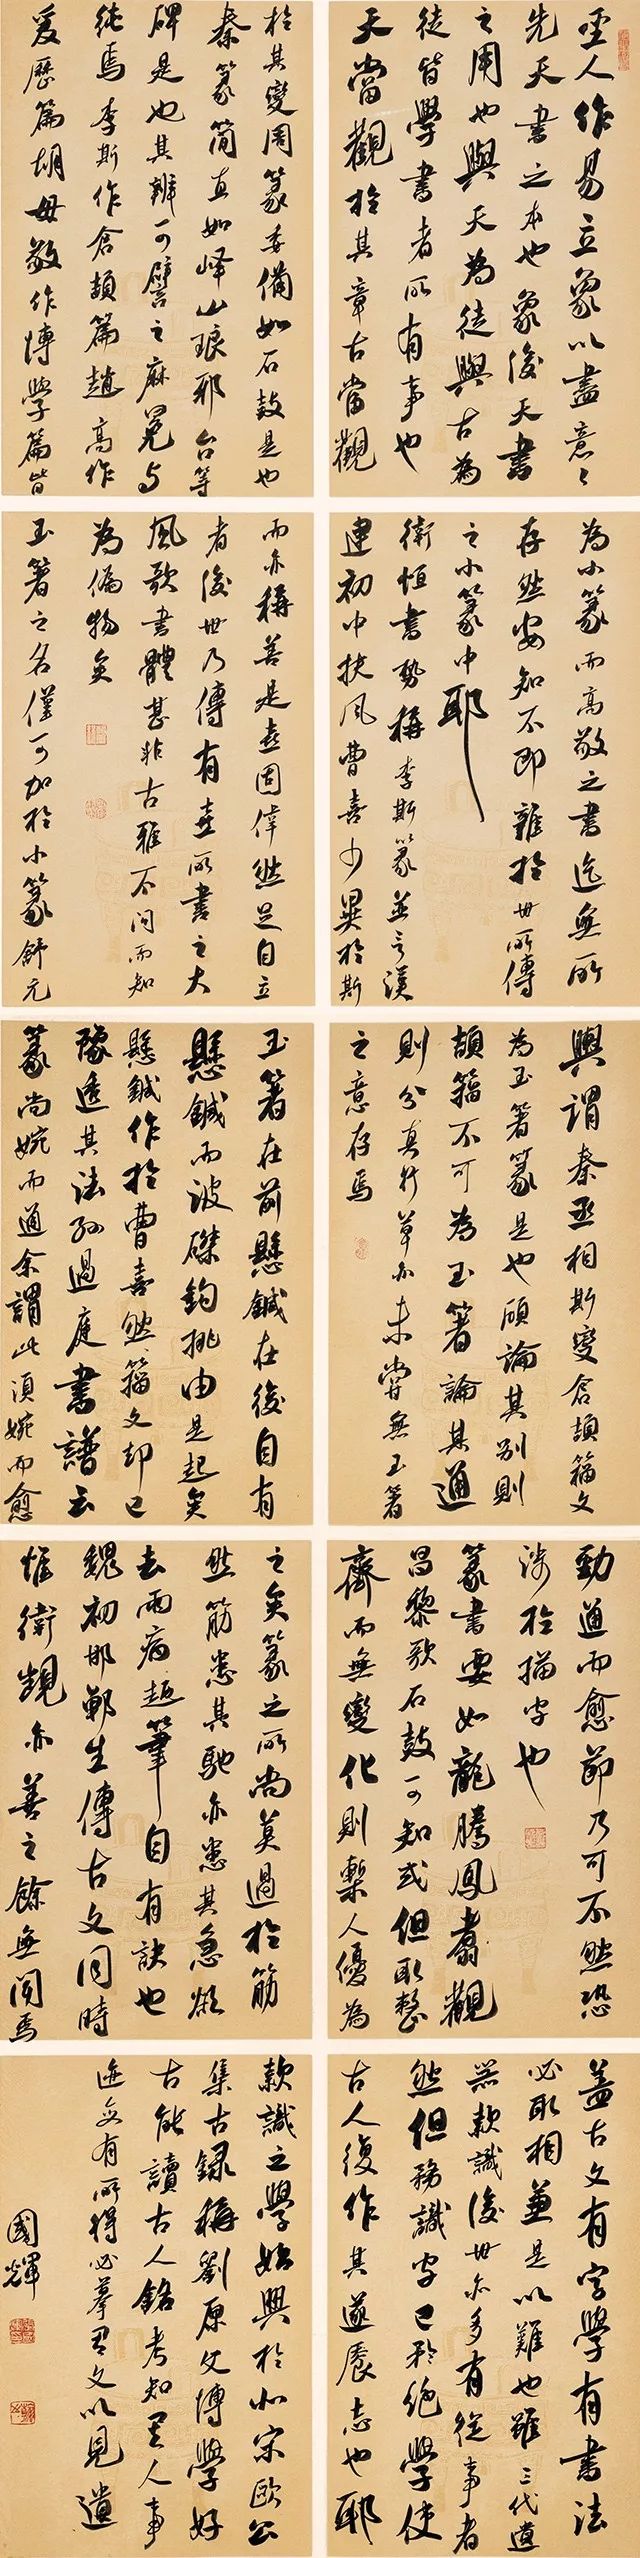 聖人作易立象以盡意々
先天書之本也象後天書
之用也與天為徒與古為
徒皆學書者所有事也
天當觀於其章古當觀
於其變周篆委備如石鼓是也
秦篆簡直如嶧山琅邪台等
碑是也其辨可譬之麻冕与
純焉李斯作倉頡篇趙高作
爰歷篇胡毋敬作博學篇皆
為小篆而高敬之書迄無所
存然安知不即雜於世所傳
之小篆中耶
衛恒書勢稱李斯篆並言漢
建初中扶風曹喜少異於斯
而亦稱善是喜固偉然足自立
者後世乃傳有喜所書之大
風歌書體甚非古雅不問而知
為偽物矣
玉箸之名僅可加於小篆舒元
輿謂秦丞相斯變倉頡籀文
為玉箸篆是也顧論其別則
頡籀不可為玉箸論其通
則分真行草亦未嘗無玉箸
之意存焉
玉箸在前懸鍼在後自有
懸鍼而波磔鉤挑由是起矣
懸鍼作於曹喜然籀文却已
豫透其法孫過庭書譜云
篆尚婉而通余謂此須婉而愈
勁通而愈節乃可不然恐
涉於描字也
篆書要如龍騰鳳翥觀
昌黎歌石鼓可知或但取整
齊而無變化則槧人優為
之矣篆之所尚莫過於筋
然筋患其馳亦患其急欲
去兩病趯筆自有訣也
魏初邯鄲生傳古文同時
惟衛覬亦善之餘無聞焉
蓋古文有字學有書法
必取相兼是以難也雖三代遺
器款識後世亦多有從事者
然但務識字已矜絕學使
古人復作其遂饜志也耶
款識之學始興於北宋歐公
集古錄稱劉原父博學好
古能讀古人銘考知其人事
迹每有所得必摹其文以見遺
國輝